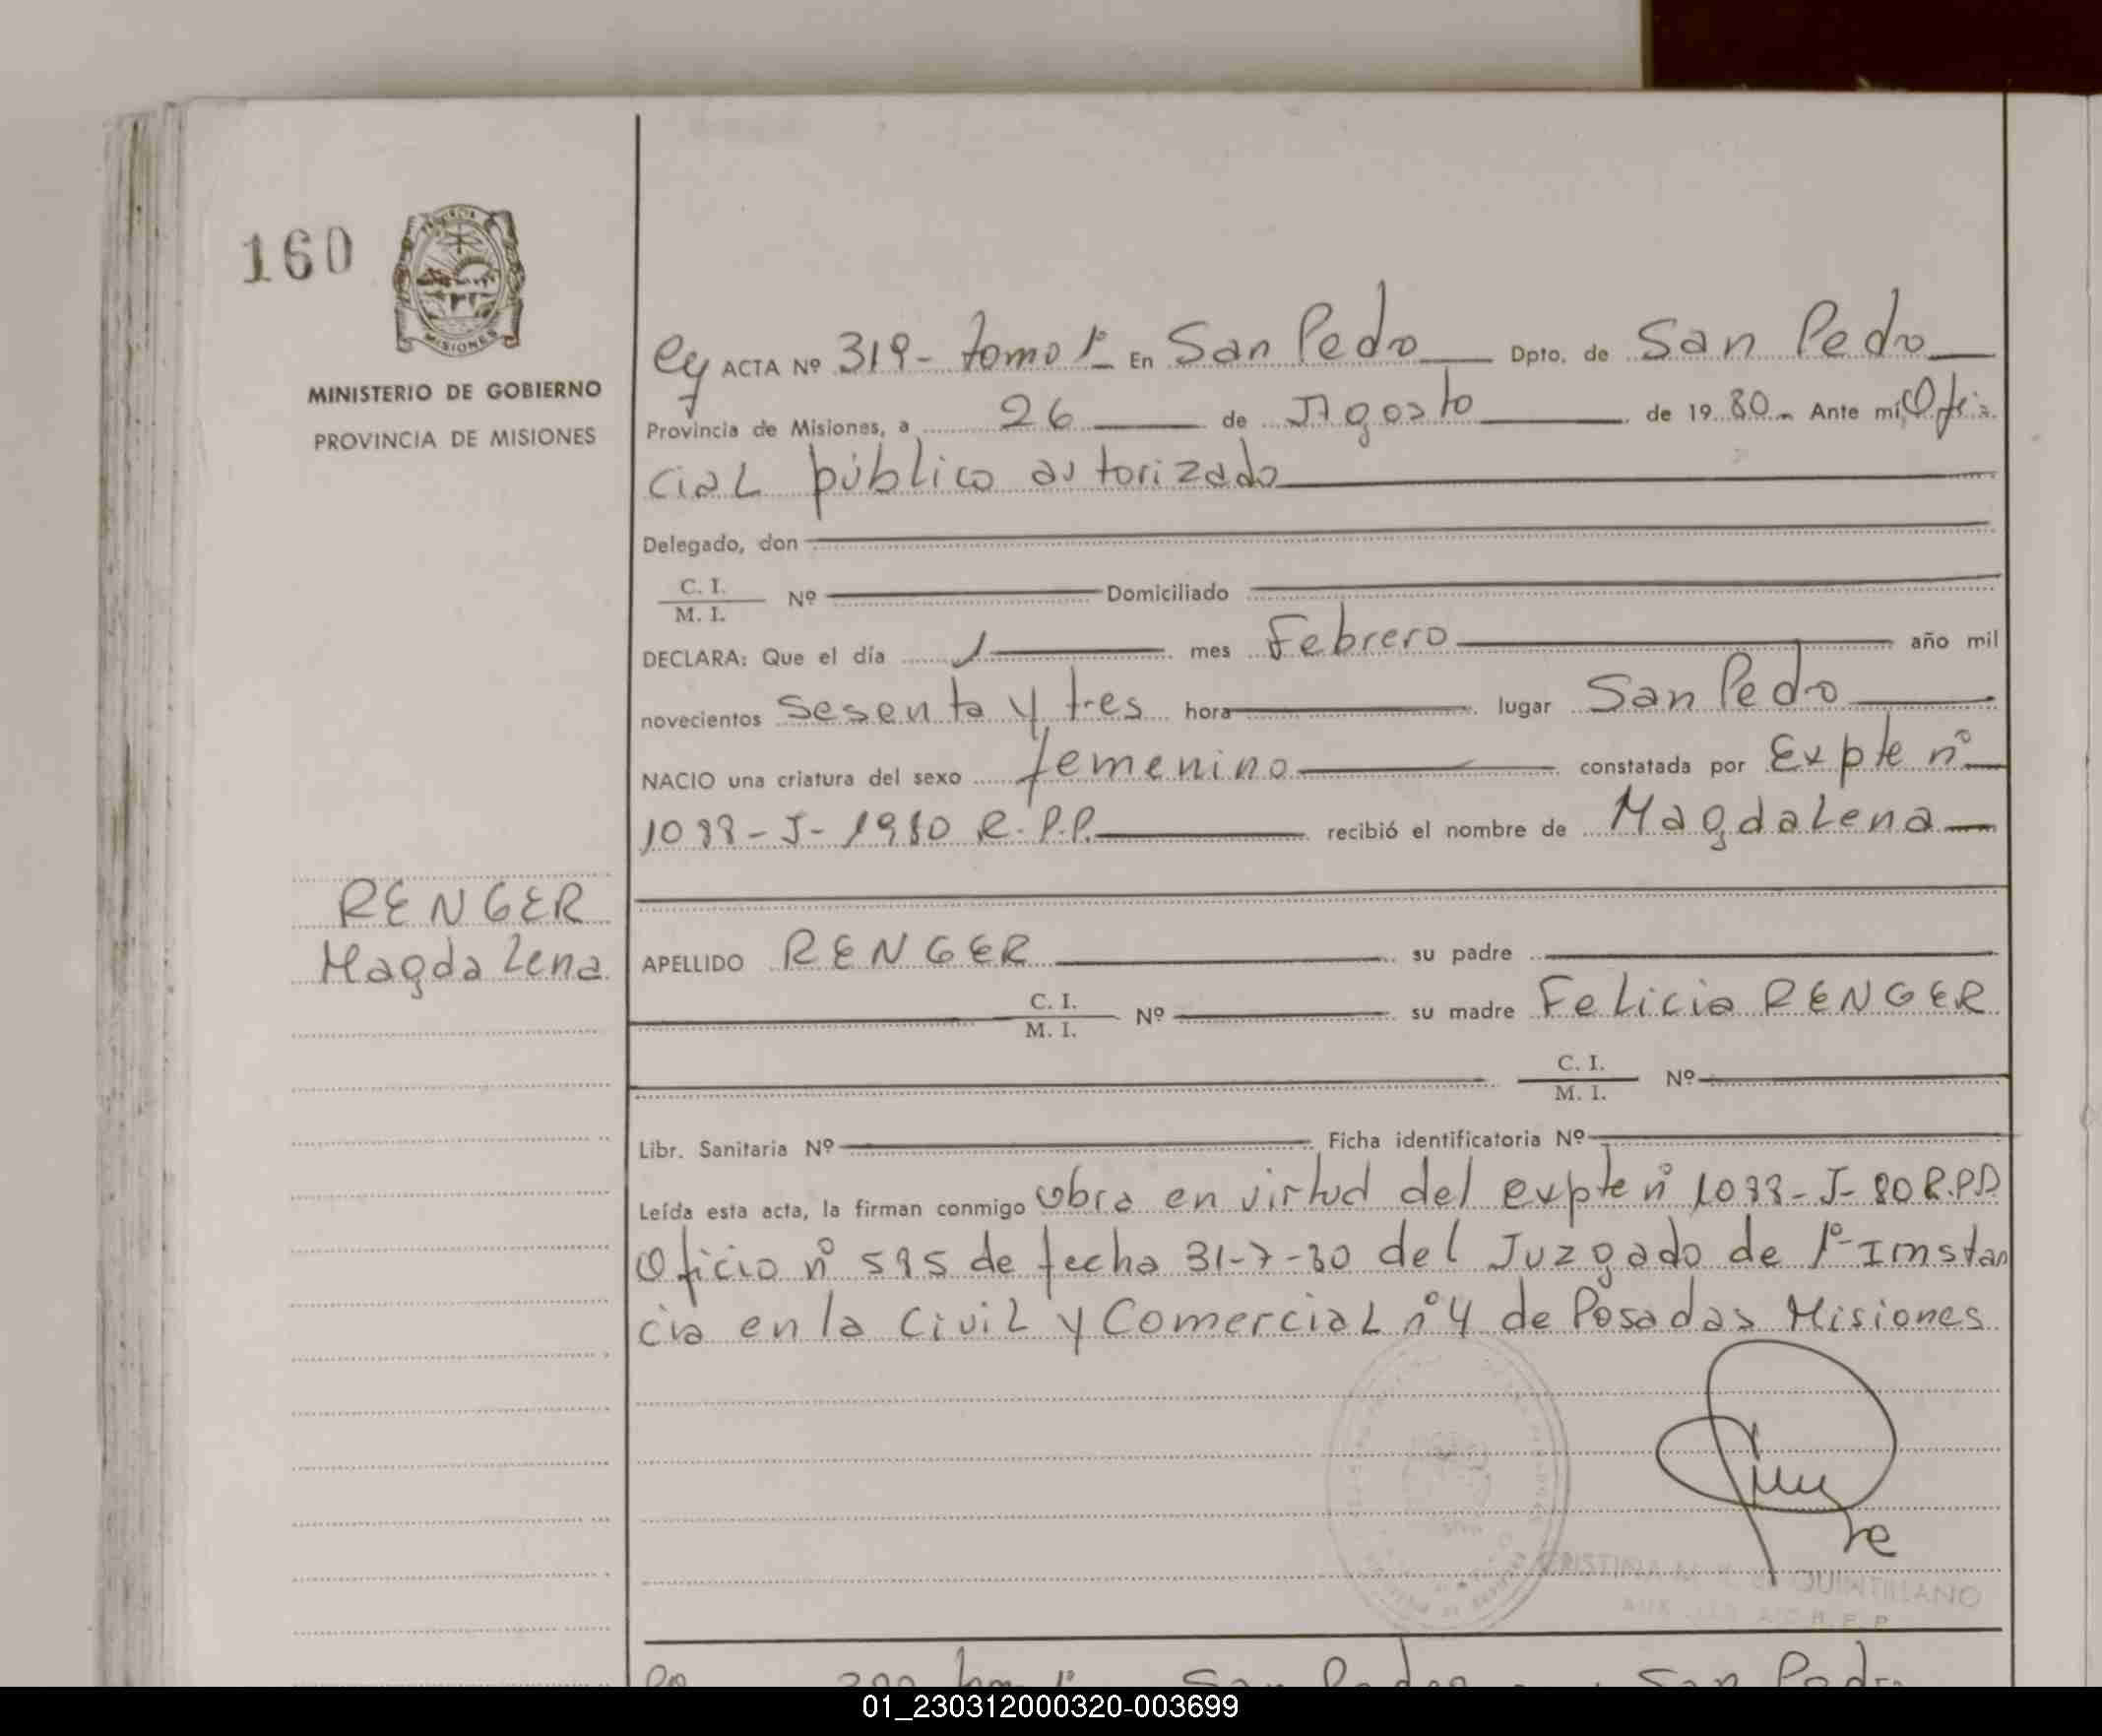 160
MISIONES
MINISTERIO DE GOBIERNO
PROVINCIA DE MISIONES
RENGER
Magdalena
Cy ACTA Nº 319- tomo 1º En San Pedro Dpto. de San Pedro
Provincia de Misiones, a 26 de Agosto de 19 80 Ante mí, Ofi
cial público autorizado
Delegado, don
C. I.
M. I. Nº Domiciliado
DECLARA: Que el día 1 mes Febrero año mil
novecientos sesenta y tres hora lugar San Pedro
NACIO una criatura del sexo femenino constatada por Expte nº
-J-1980 R.P.P. recibió el nombre de Magdalena
APELLIDO RENGER su padre
C. I.
M. I. Nº su madre Felicia RENGER
C. I.
M. I. Nº
Libr. Sanitaria Nº Ficha identificatoria Nº
Leída esta acta, la firman conmigo obra en virtud del expte nº -J-80
Oficio nº 595 de fecha 31-7-80 del Juzgado de 1º Imstan
cia en la Civil y Comercial nº 4 de Posadas Misiones
CRISTINA QUINTILIANO
San Pedro San Pedro
01_230312000320-003699